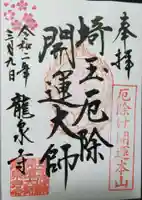 奉拝
厄除け開運本山
埼玉厄除
開運大師
令和二年
三月九日
龍泉寺